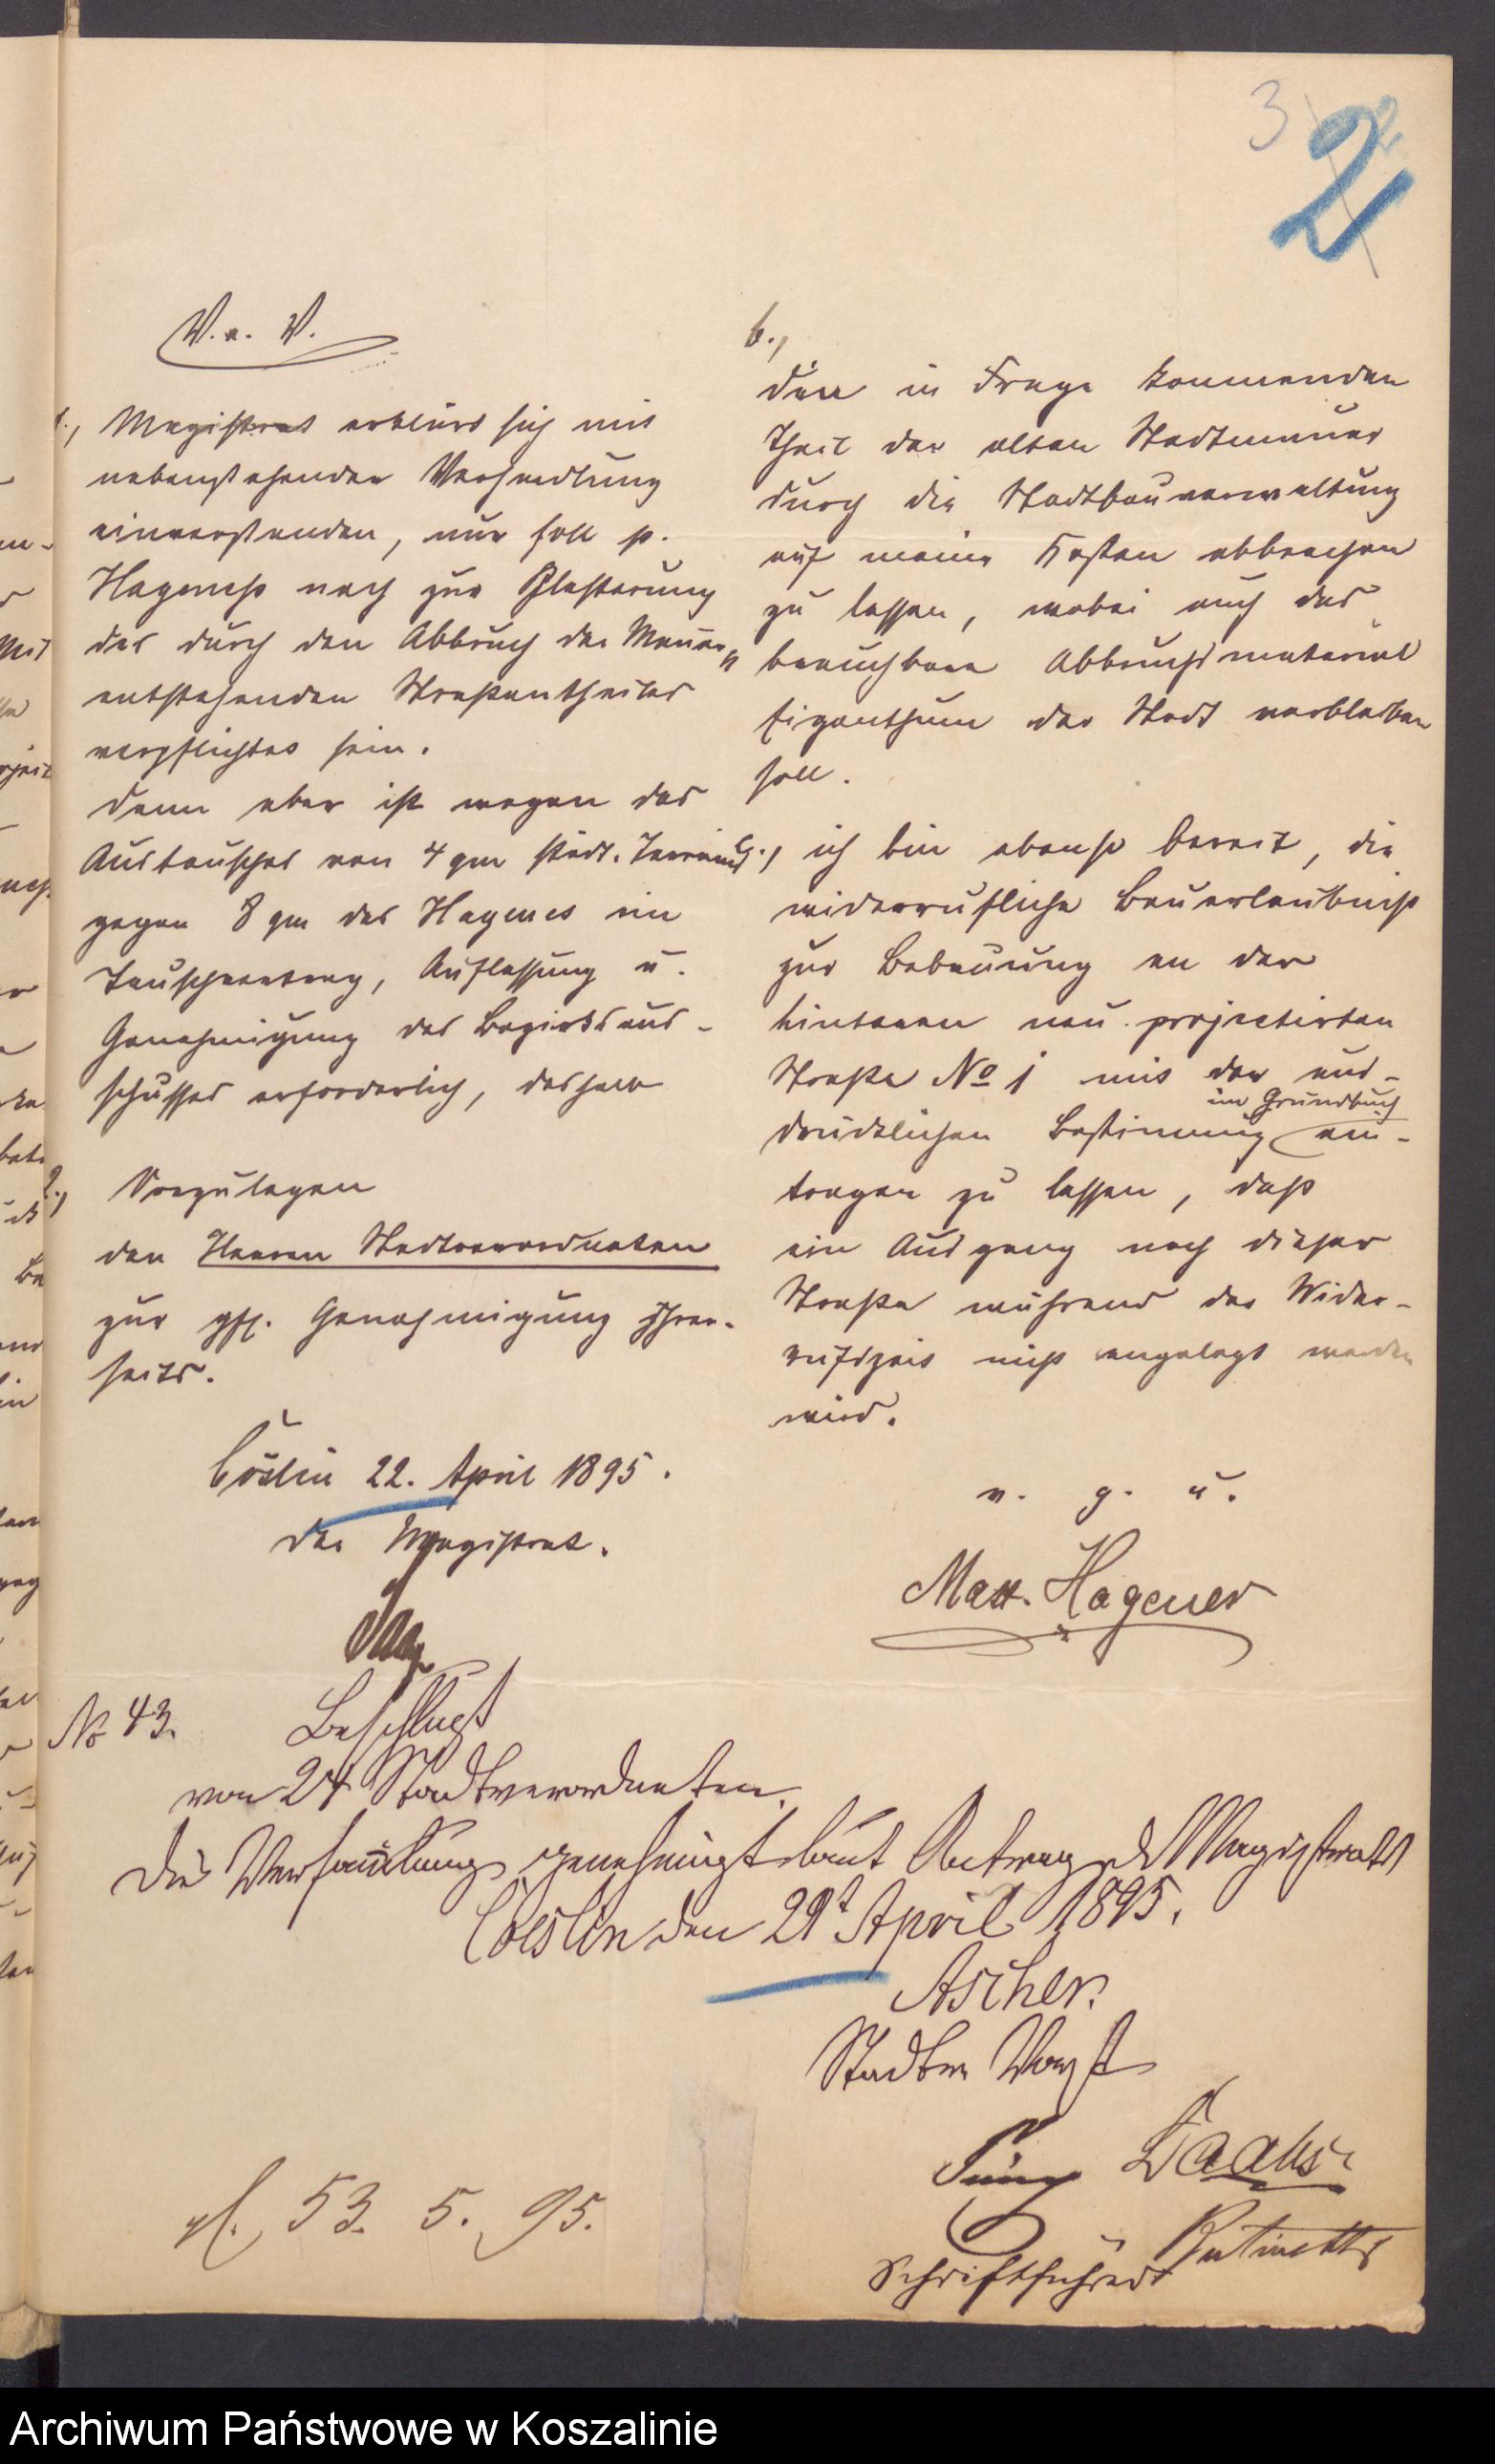 3 2
V. u. V.
1., Magistrat erklärt sich mit
nebenstehender Verhandlung
einverstanden, nur soll p.
Hageneß noch zur Pflasterung
des durch den Abbruch der Mauer
entstehenden Straßentheiles
verpflichtet sein.
Dann aber ist wegen des
Austausches von 4 qm städt. Terrains
gegen 8 qm des Hagenes ein
Tauschvertrag, Auflassung u.
Genehmigung des Bezirksaus-
schusses erforderlich, deshalb
2., Vorzulegen
den Herren Stadtverordneten
zur gfl. Genehmigung Ihrer-
seits.
Cöslin 22. April 1895.
Der Magistrat.
b.,
den in Frage kommenden
Theil der alten Stadtmauer
durch die Stadtbauverwaltung
auf meine Kosten abbrechen
zu lassen, wobei auch das
brauchbare Abbruchsmaterial
Eigenthum der Stadt verbleiben
soll.
c., ich bin ebenso bereit, die
widerrufliche Bauerlaubniß
zur Bebauung an der
hinteren neu projectirten
Straße No 1 mit der aus-
im Grundbuch
drücklichen Bestimmung ein-
tragen zu lassen, daß
ein Ausgang nach dieser
Straße während der Wider-
rufszeit nicht angelegt werden
wird.
v. g. u.
Max. Hagener
No 43. Beschluß
von 24 Stadtverordneten.
Die Versammlung genehmigt laut Antrag d Magistrats
Coeslin den 29t April 1895.
Ascher.
Stadtv. Vorst
Schriftführer
53. 5. 95.
Archiwum Państwowe w Koszalinie